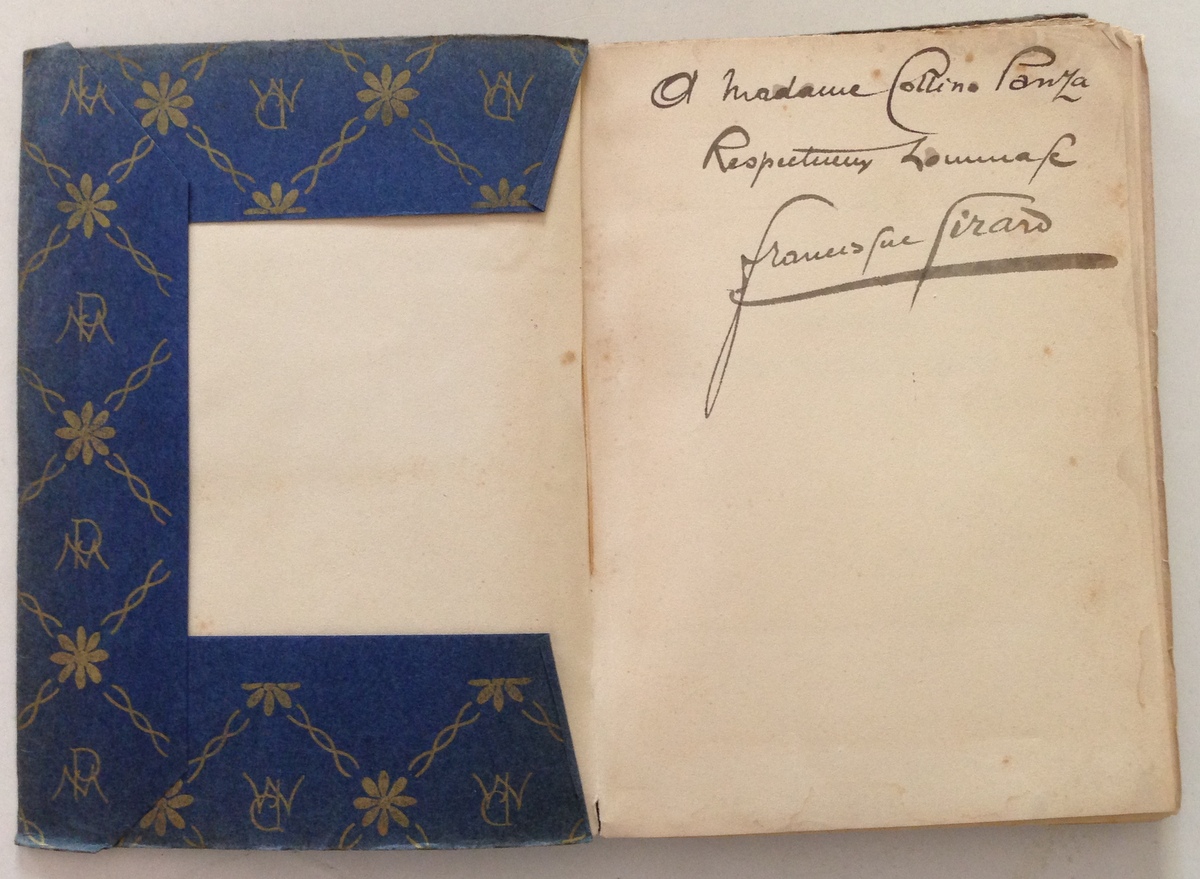 A Madame Collino Panza
Respectueux hommage
Francisque Girard